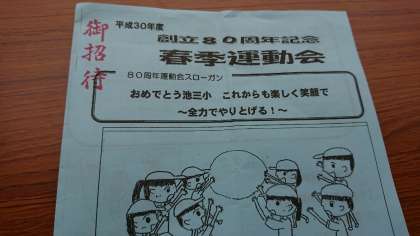 御招待
平成30年度
創立80周年記念
春季運動会
80周年運動会スローガン
おめでとう池三小 これからも楽しく笑顔で
～全力でやりとげる！～